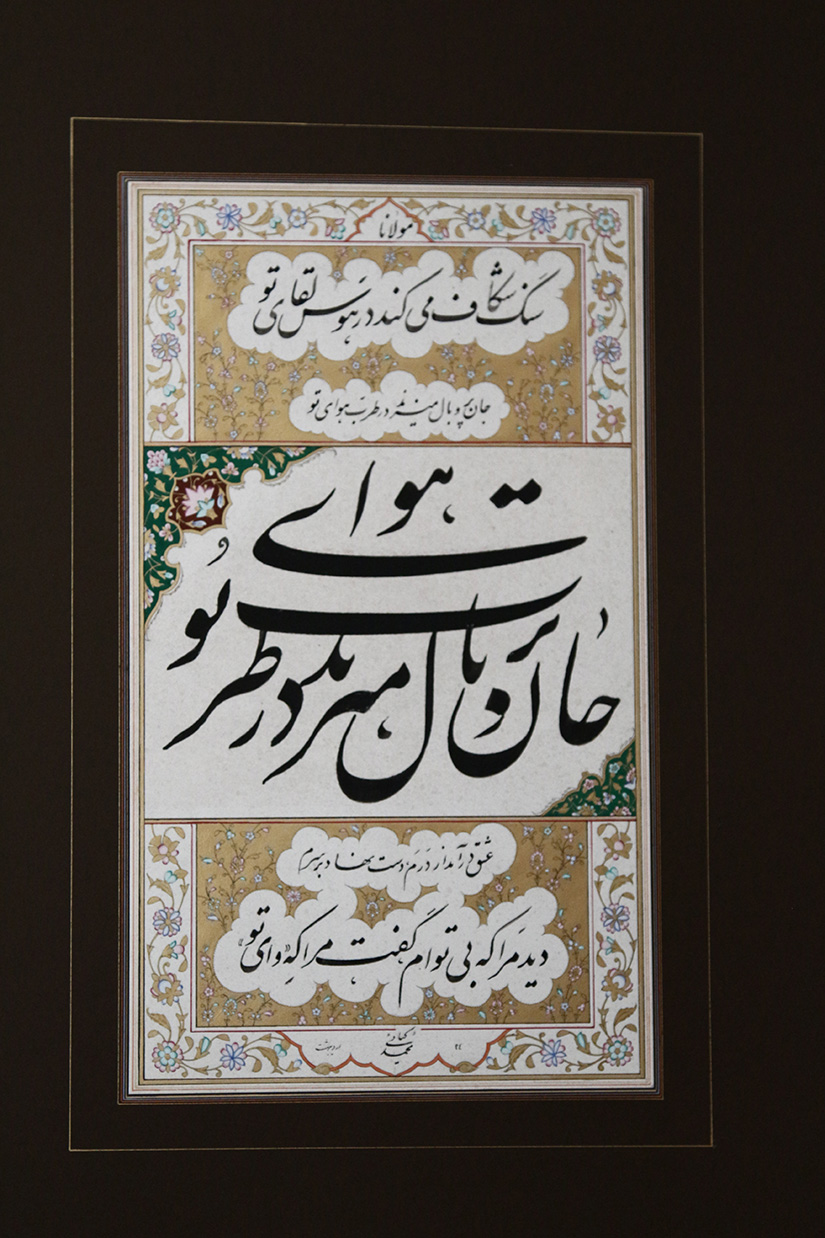 مولانا
سنگ شکاف می کند در هوس لقای تو
جان پر و بال میزند در طرب هوای تو
جان پر و بال میزند در طرب هوای تو
عشق درآمد از درم دست نهاد بر سرم
دید مرا که بی توام گفت مرا که وای تو
اردیبهشت